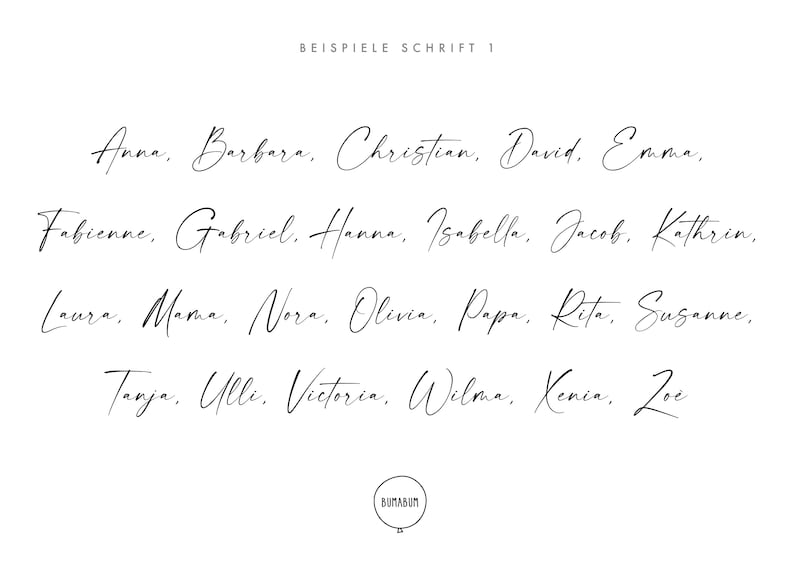 BEISPIELE SCHRIFT 1
Anna, Barbara, Christian, David, Emma,
Fabienne, Gabriel, Hanna, Isabella, Jacob, Kathrin,
Laura, Mama, Nora, Olivia, Papa, Rita, Susanne,
Tanja, Ulli, Victoria, Wilma, Xenia, Zoè
BUMABUM